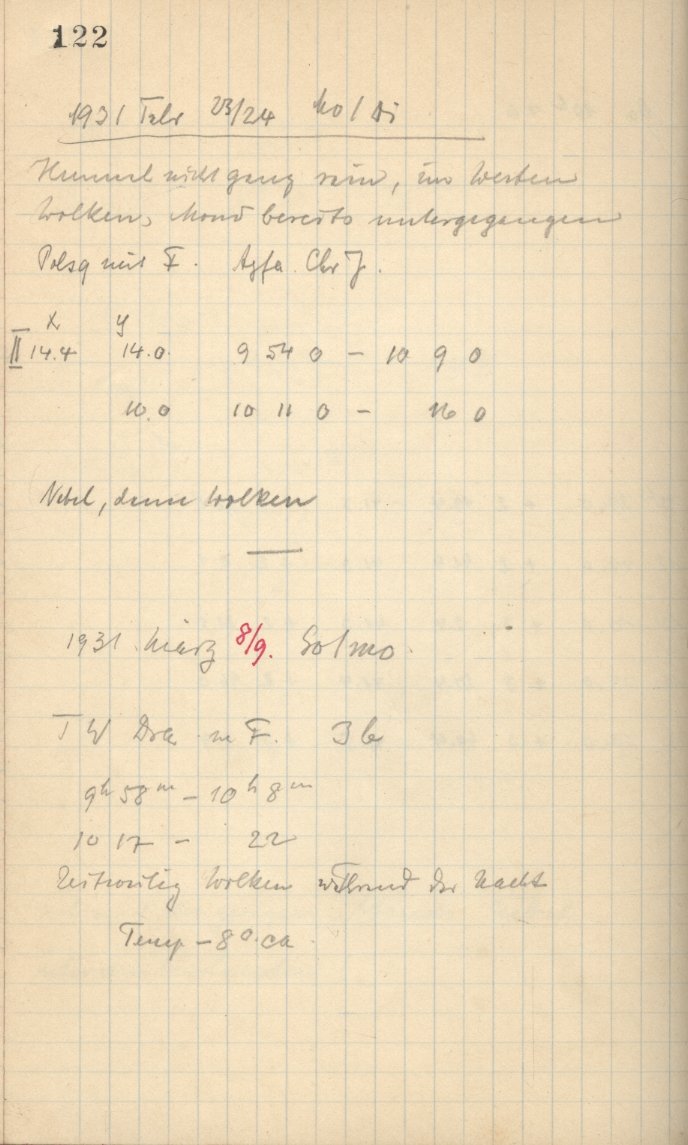 122
1931 Febr 23/24 Mo/Di
Himmel nicht ganz rein, im Westen
Wolken, Mond bereits untergegangen
Polsq mit F. Agfa Chr J.
x y
II 14.4 14.0 9 54 0 – 10 9 0
10.0 10 11 0 – 16 0
Nebel, dann Wolken
1931 März 8/9. So/Mo.
TW Dra m F. 3b
9h 58m – 10h 8m
10 17 – 22
Zeitweilig Wolken während der Nacht
Temp – 8° ca